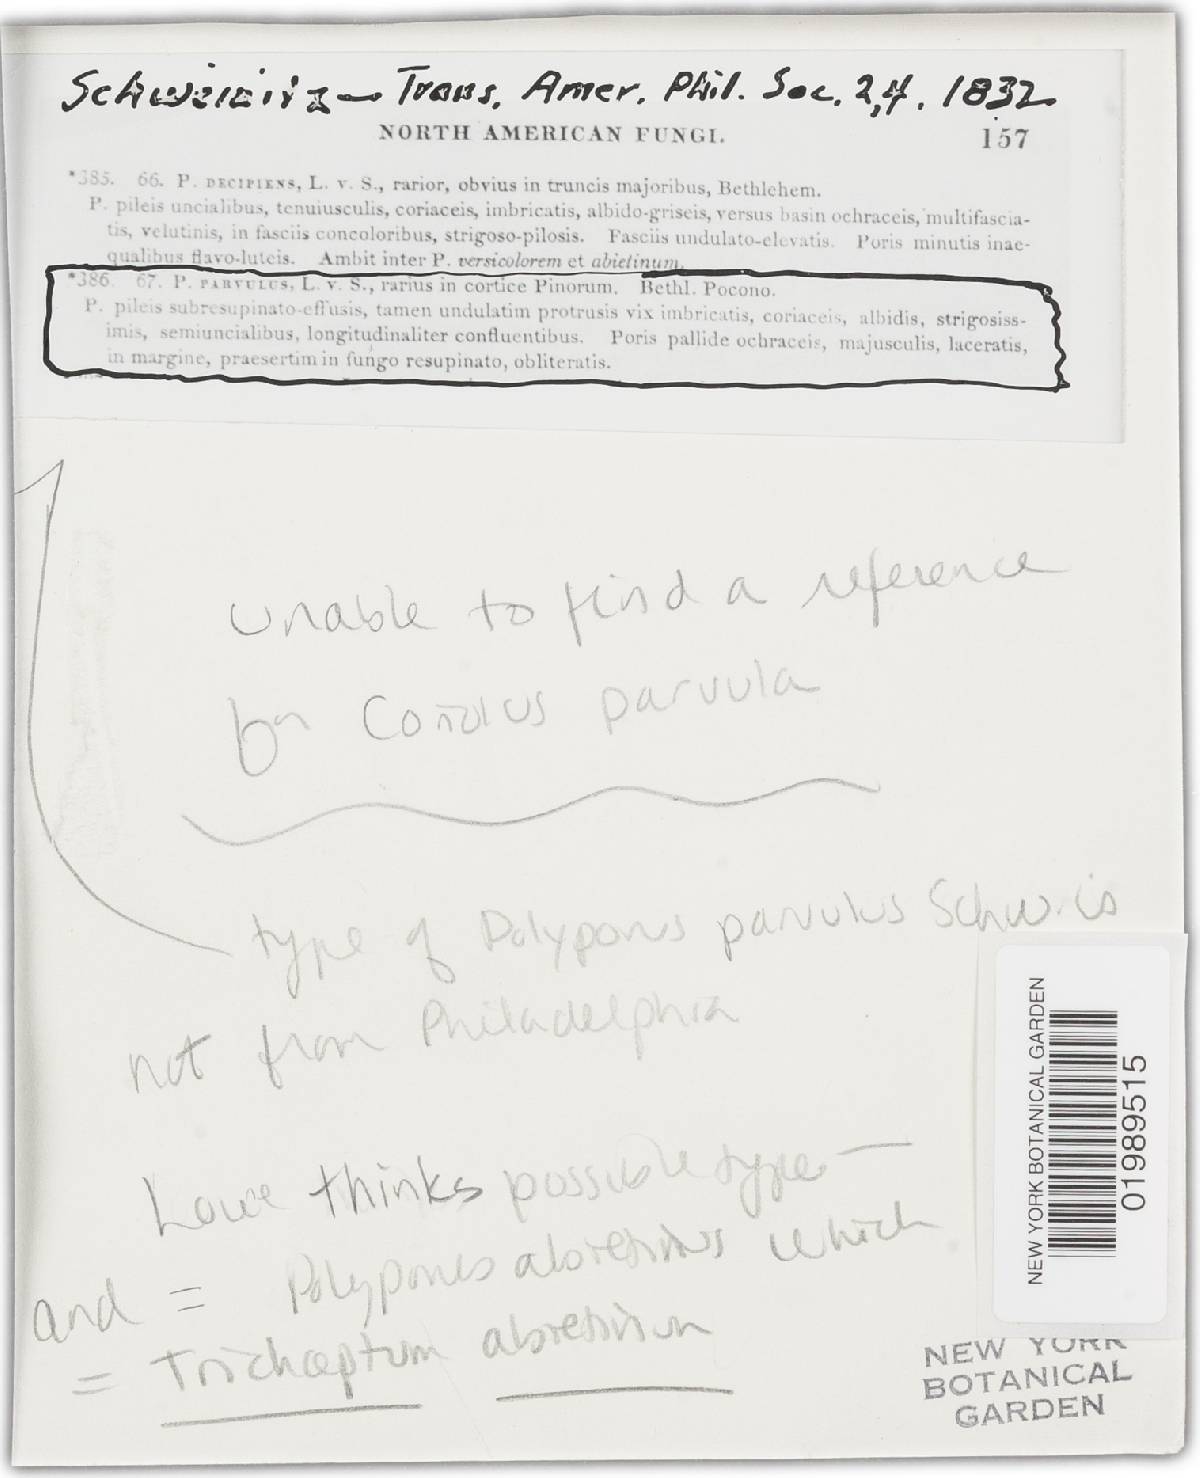 Schweinitz — Trans. Amer. Phil. Soc. 2,4. 1832
NORTH AMERICAN FUNGI. 157
*385. 66. P. DECIPIENS, L. v. S., rarior, obvius in truncis majoribus, Bethlehem.
P. pileis uncialibus, tenuiusculis, coriaceis, imbricatis, albido-griseis, versus basin ochraceis, multifascia-
tis, velutinis, in fasciis concoloribus, strigoso-pilosis. Fasciis undulato-elevatis. Poris minutis inae-
qualibus flavo-luteis. Ambit inter P. versicolorem et abietinum.
*386. 67. P. PARVULUS, L. v. S., rarius in cortice Pinorum. Bethl. Pocono.
P. pileis subresupinato-effusis, tamen undulatim protrusis vix imbricatis, coriaceis, albidis, strigosiss-
imis, semiuncialibus, longitudinaliter confluentibus. Poris pallide ochraceis, majusculis, laceratis,
in margine, praesertim in fungo resupinato, obliteratis.
Unable to find a reference
for Coriolus parvula
type of Polyporus parvulus Schw. is
not from Philadelphia
Lowe thinks possible type —
and = Polyporus abietinus which
= Trichaptum abietinum
NEW YORK BOTANICAL GARDEN
01989515
NEW YORK
BOTANICAL
GARDEN